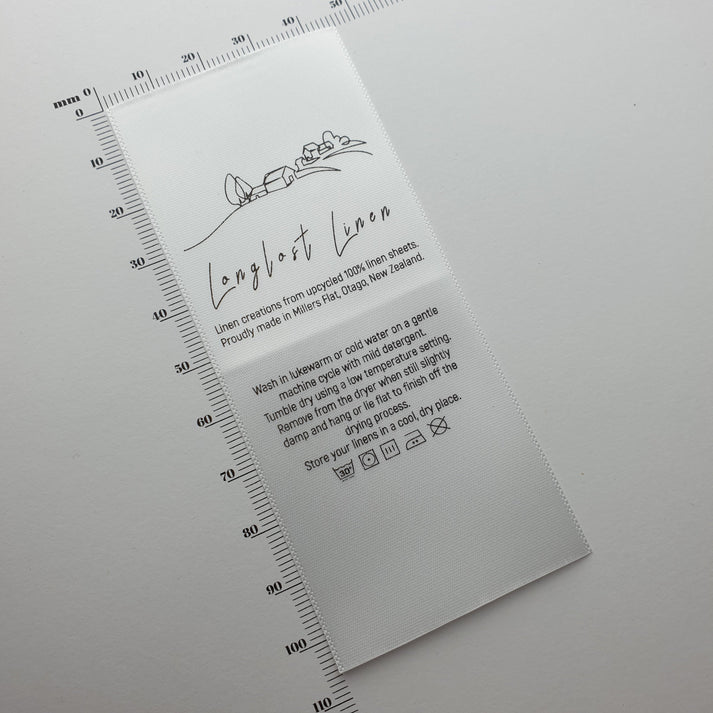 mm 0 10 20 30 40 50
0
10
20
30
40
50
60
70
80
90
100
110
Longlost Linen
Linen creations from upcycled 100% linen sheets.
Proudly made in Millers Flat, Otago, New Zealand.
Wash in lukewarm or cold water on a gentle
machine cycle with mild detergent.
Tumble dry using a low temperature setting.
Remove from the dryer when still slightly
damp and hang or lie flat to finish off the
drying process.
Store your linens in a cool, dry place.
30°